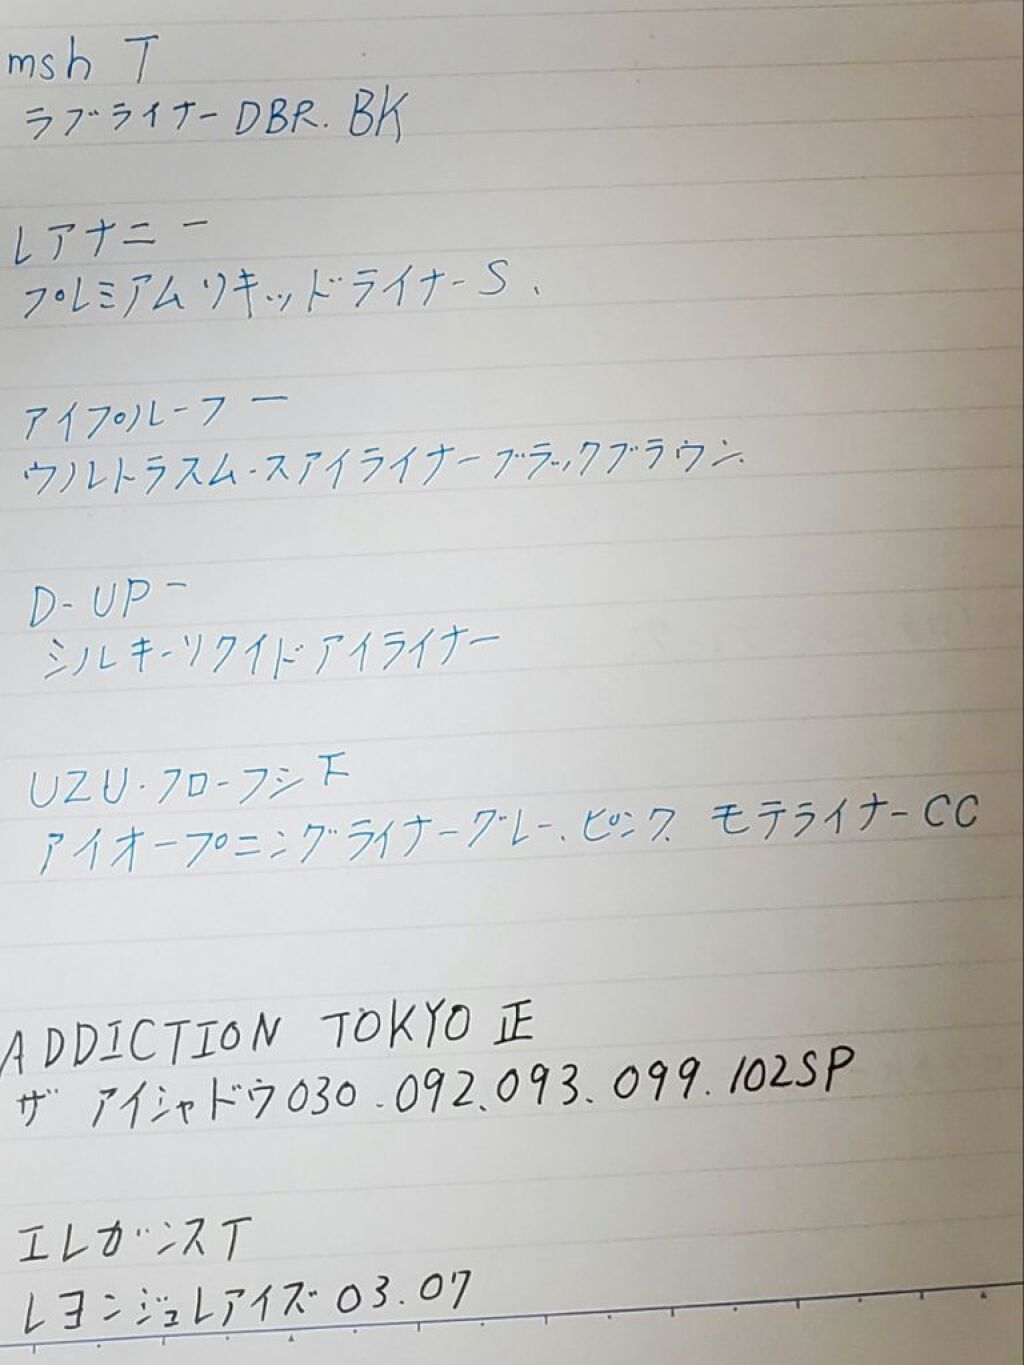 msh T
ラブライナーDBR. BK
レアナニ 一
プレミアムリキッドライナーS、
アイプルーフ 一
ウルトラスムースアイライナーブラックブラウン、
D-UP 一
シルキーリクイドアイライナー
UZU・フローフシ 下
アイオープニングライナーグレー、ピンク、モテライナーCC
ADDICTION TOKYO 正
ザ アイシャドウ030.092、093.099.102SP
エレガンス T
レヨンジュレアイズ 03.07